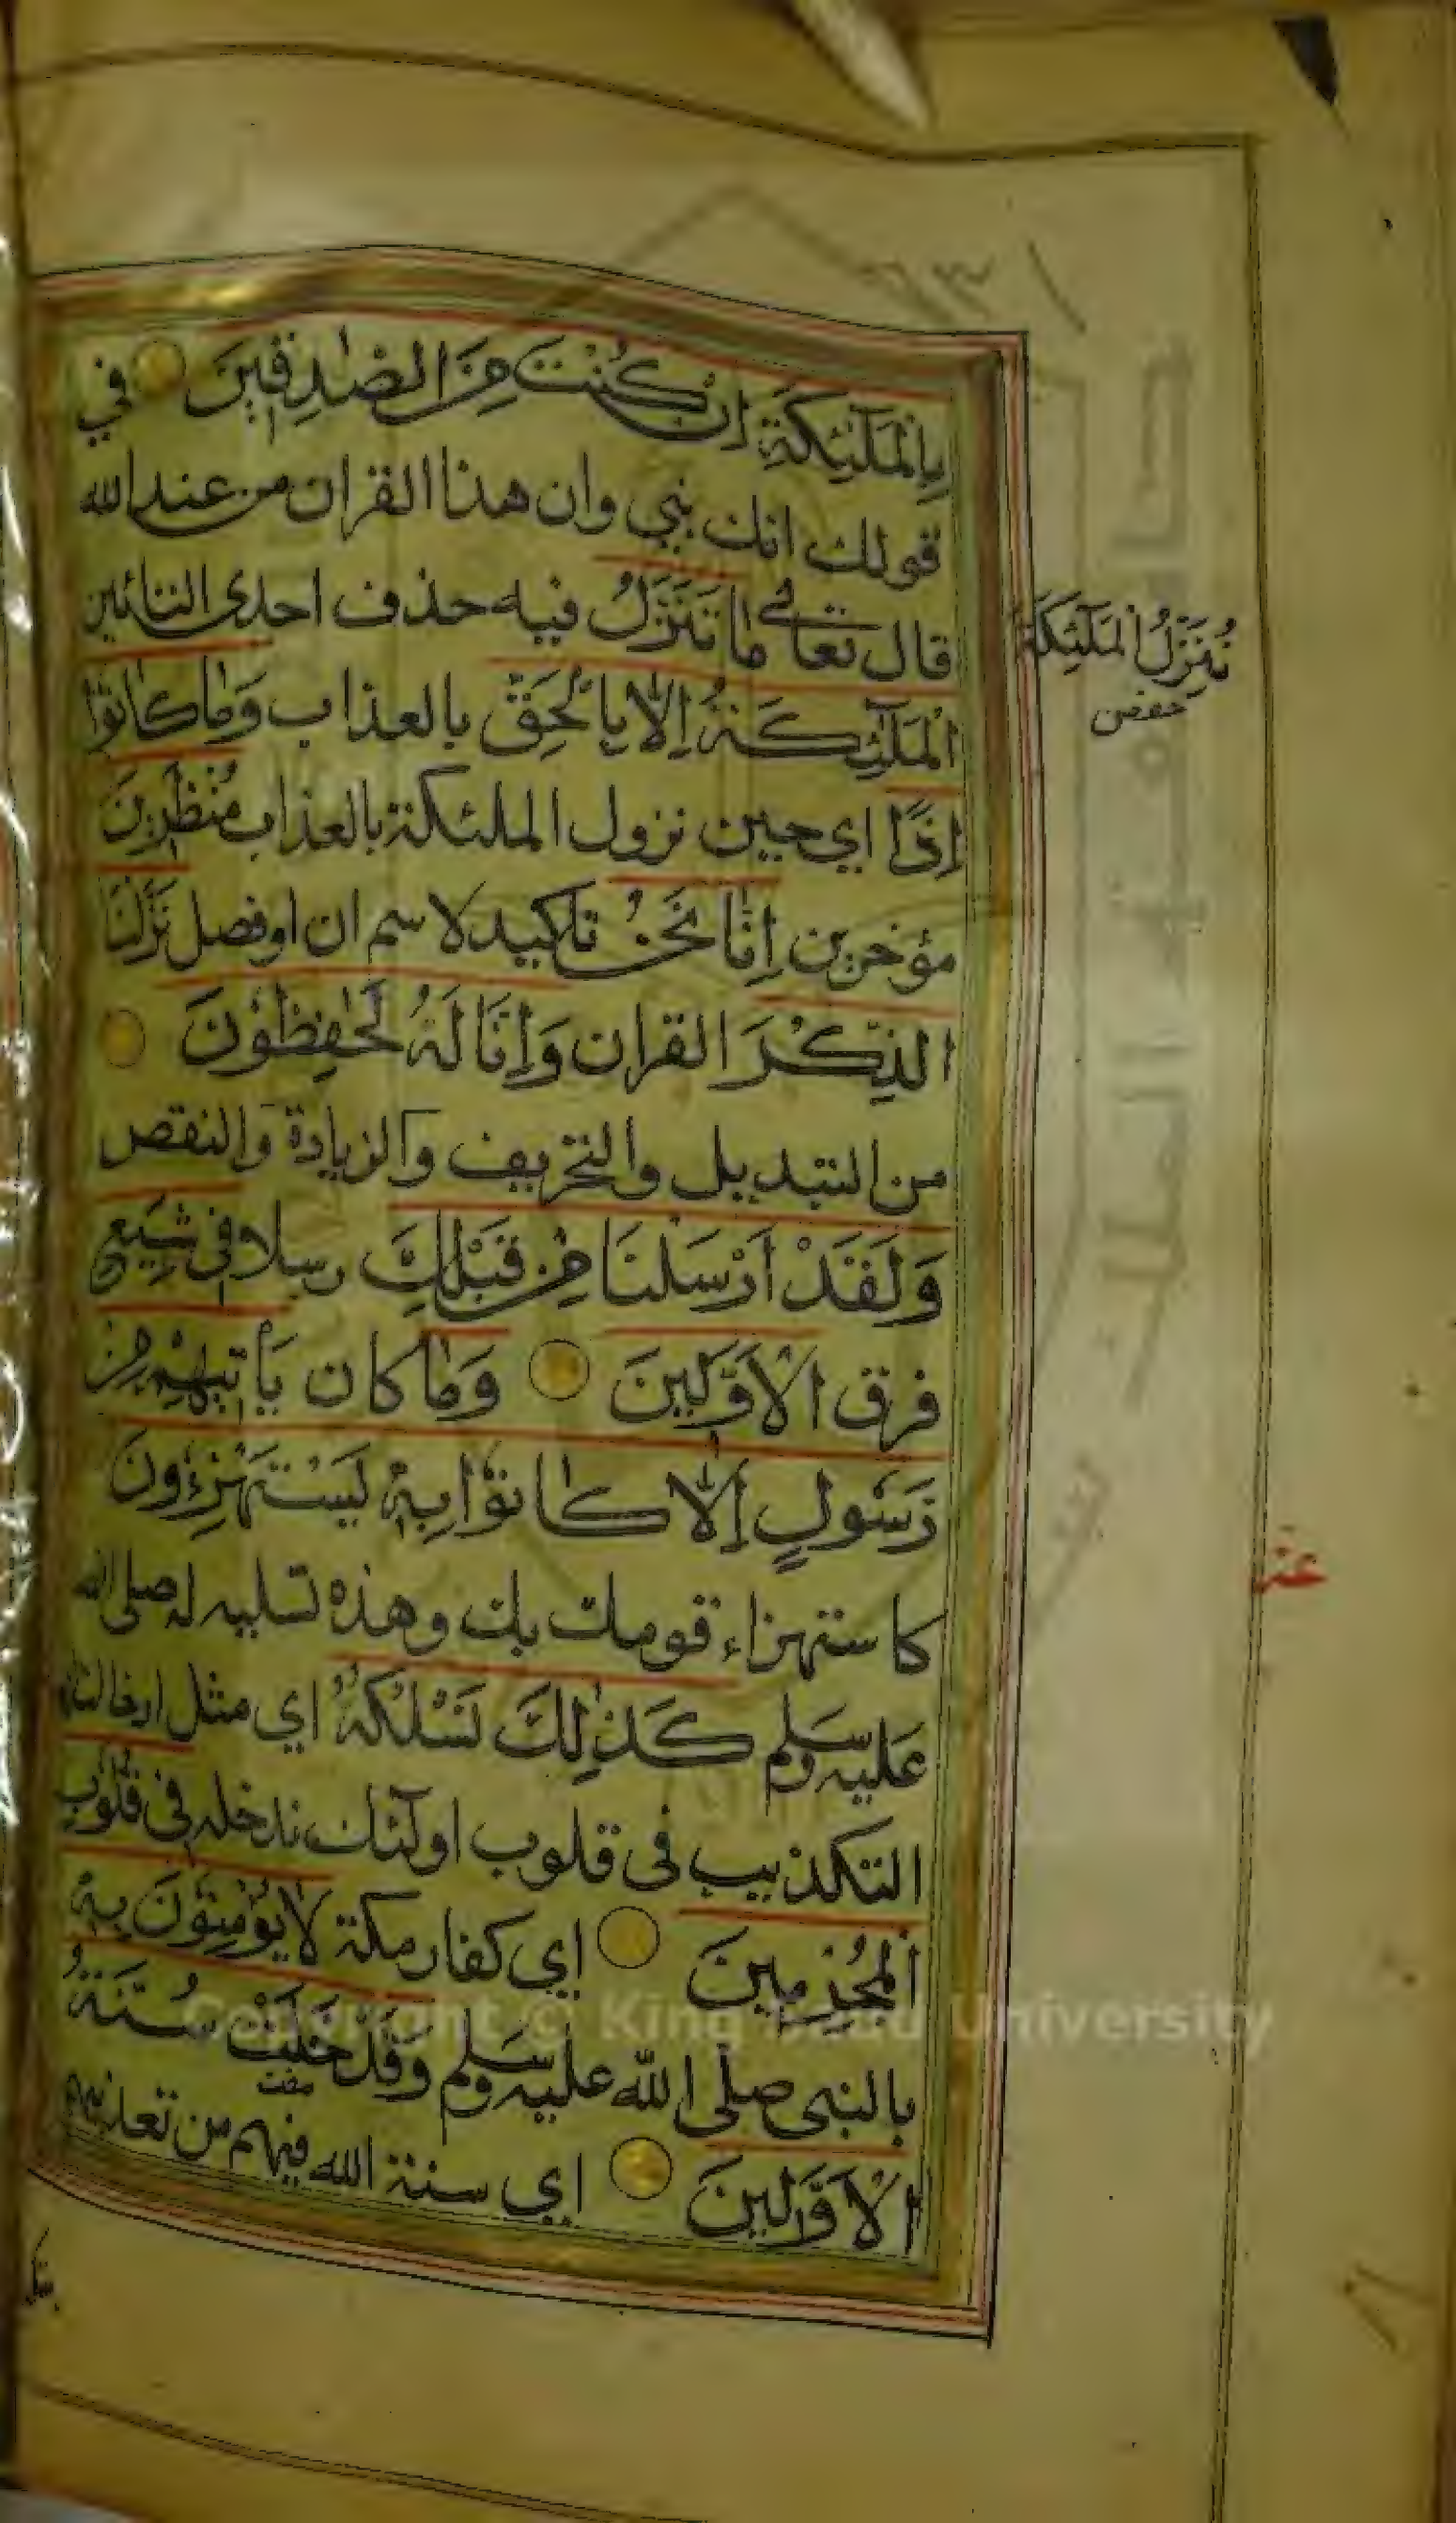 بِالْمَلٰٓئِكَةِ اِنْ كُنْتَ مِنَ الصّٰدِقٖينَ في
قولك انك نبي وان هذا القران من عند الله
قال تعالى مَا تَنَزَّلُ فيه حذف احدى التائين
الْمَلٰٓئِكَةُ اِلَّا بِالْحَقِّ بالعذاب وَمَا كَانُوٓا
اِذًا اي حين نزول الملئكة بالعذاب مُنْظَرٖينَ
مؤخرين اِنَّا نَحْنُ تاكيد لاسم ان او فصل نَزَّلْنَا
الذِّكْرَ القران وَاِنَّا لَهُ لَحٰفِظُونَ
من التبديل والتحريف والزيادة والنقص
وَلَقَدْ اَرْسَلْنَا مِنْ قَبْلِكَ رسلا فِى شِيَعِ
فرق الْاَوَّلٖينَ وَمَا كان يَأْتٖيهِمْ مِنْ
رَسُولٍ اِلَّا كَانُوا بِهٖ يَسْتَهْزِءُونَ
كاستهزاء قومك بك وهذه تسليه له صلى الله
عليه وسلم كَذٰلِكَ نَسْلُكُهُ اي مثل ادخالنا
التكذيب فى قلوب اولٓئك ندخله فى قُلُوبِ
الْمُجْرِمٖينَ اي كفار مكة لَا يُؤْمِنُونَ بِهٖ
بالنبى صلى الله عليه وسلم وَقَدْ خَلَتْ سُنَّةُ
مضت
الْاَوَّلٖينَ اي سنة الله فيهم من تعذيبهم
نُنَزِّلُ الْمَلٰٓئِكَةَ
حفص
Copyright © King Saud University